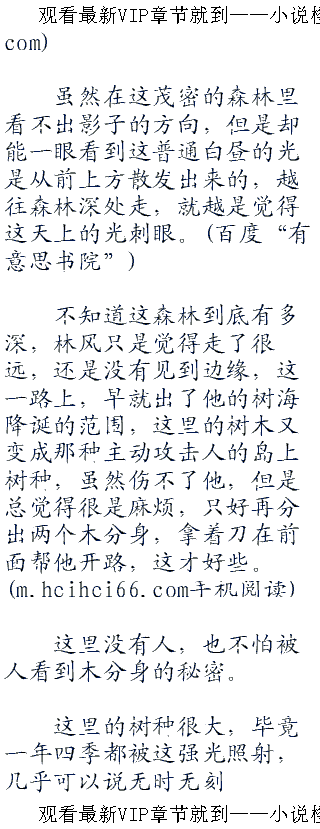 观看最新VIP章节就到——小说
com)
虽然在这茂密的森林里
看不出影子的方向，但是却
能一眼看到这普通白昼的光
是从前上方散发出来的，越
往森林深处走，就越是觉得
这天上的光刺眼。(百度“有
意思书院”)
不知道这森林到底有多
深，林风只是觉得走了很
远，还是没有见到边缘，这
一路上，早就出了他的树海
降诞的范围，这里的树木又
变成那种主动攻击人的岛上
树种，虽然伤不了他，但是
总觉得很是麻烦，只好再分
出两个木分身，拿着刀在前
面帮他开路，这才好些。
(m.hcihci66.com手机阅读)
这里没有人，也不怕被
人看到木分身的秘密。
这里的树种很大，毕竟
一年四季都被这强光照射，
几乎可以说无时无刻
观看最新VIP章节就到——小说